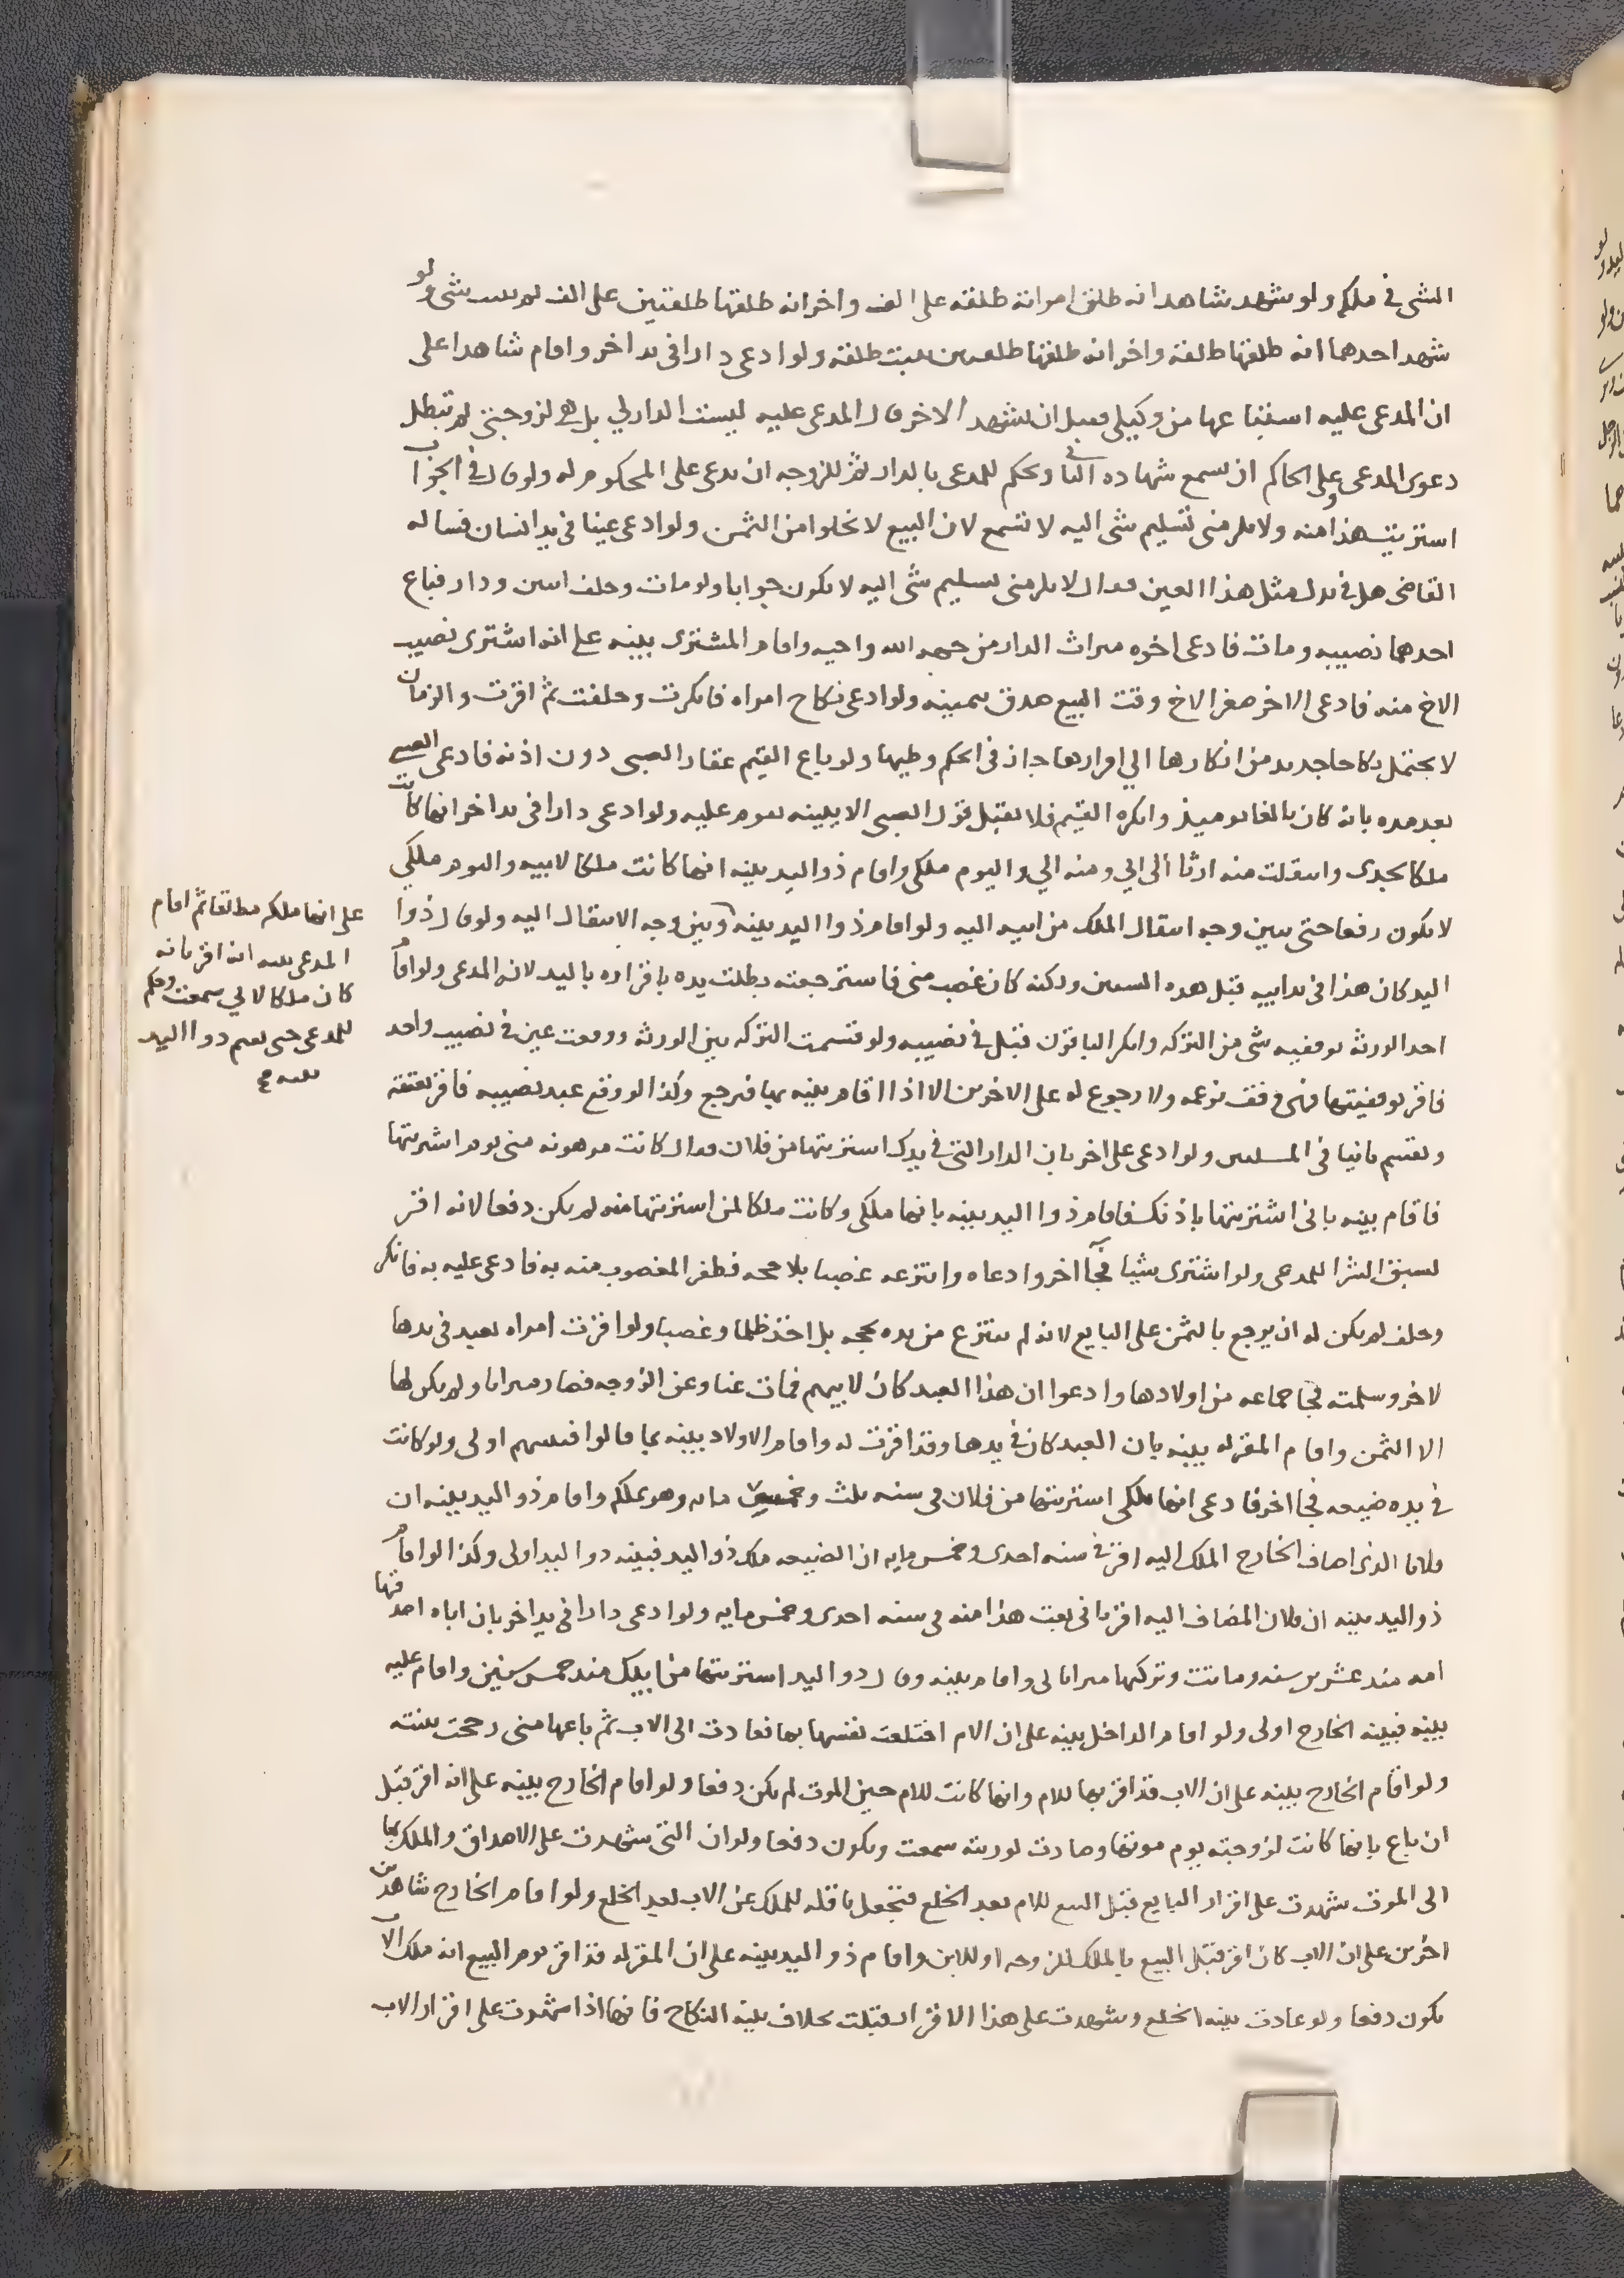 الشى فى ملكه ولو شهد شاهد انه طلق امراته طلقة على الف واخر انه طلقها طلقتين على الف لم يثبت شى ولو
شهد احدهما انه طلقها طلقة واخر انه طلقها طلقتين يثبت طلقة ولو ادعى دارا فى يد اخر واقام شاهدا على
ان المدعى عليه استباعها من وكيلى فقبل ان يشهد الاخر قال المدعى عليه ليست الدار لي بل هى لزوجتى لم تبطل
دعوى المدعى وعلى الحاكم ان يسمع شهاده الثانى ويحكم للمدعى بالدار ثم للزوجه ان تدعى على المحكوم له ولو قال فى الجواب
اشتريت هذا منه ولا يلزمنى تسليم شى اليه لا تسمع لان البيع لا يخلوا من الثمن ولو ادعى عينا فى يد انسان فساله
القاضى هل فى يدك مثل هذا العين فقال لا يلزمنى تسليم شى اليه لا يكون جوابا ولو مات وخلف ابنين ودار فباع
احدهما نصيبه ومات فادعى اخوه ميراث الدار من جهة ابيه واخيه واقام المشترى بينه على انه اشترى نصيب
الاخ منه فادعى الاخر صغر الاخ وقت البيع صدق بيمينه ولو ادعى نكاح امراه فانكرت وحلفت ثم اقرت والزمان
لا يحتمل نكاحا جديد من انكارها الي اقرارها جاز فى الحكم وطيها ولو باع القيم عقار الصبى دون اذنه فادعى الصبى
بعد مده بانه كان بالغا يوميذ وانكره القيم فلا يقبل قول الصبى الا ببينه تقوم عليه ولو ادعى دارا فى يد اخر انها كانت
ملكا لجدى وانتقلت منه ارثا الى ابي ومنه الي واليوم ملكى واقام ذو اليد بينه انها كانت ملكا لابيه واليوم ملكي
لا يكون دفعا حتى يبين وجه انتقال الملك من ابيه اليه ولو اقام ذوا اليد بينه وبين وجه الانتقال اليه ولو قال ذوا
اليد كان هذا فى يد ابيه قبل هذه السنين ولكنه كان غصب منى فاسترجعته بطلت يده باقراره باليد لاب المدعى ولو اقام
احد الورثه بوقفيه شى من التركه وانكر الباقون قبل فى نصيبه ولو قسمت التركه بين الورثه ووقعت عين فى نصيب واحد
فاقر بوقفيتها فهى وقف بزعمه ولا رجوع له على الاخرين الا اذا اقام بينه بها فيرجع وكذا لو وقع عبد نصيبه فاقر بعتقه
ويقسم ثانيا فى المسلتين ولو ادعى على اخر بان الدار التى فى يدك اشتريتها من فلان فقال كانت مرهونه منى يوم اشتريتها
فاقام بينه بانى اشتريتها باذنك فاقام ذوا اليد بينه بانها ملكى وكانت ملكا لمن اشتريتها منه لم يكن دفعا لانه اقر
لسبق الشرا للمدعى ولو اشترى شيا فجا اخر وادعاه وانتزعه غصبا بلا حجه فظفر المغصوب منه به فادعى عليه به فانكر
وحلف لم يكن له ان يرجع بالثمن على البايع لانه لم ينتزع من يده بحجه بل اخذ ظلما وغصبا ولو اقرت امراه بعبد فى يدها
لاخر وسلمته فجا جماعه من اولادها وادعوا ان هذا العبد كان لابيهم فمات عنا وعن الزوجه فصار ميراثا ولم يكن لها
الا الثمن واقام المقر له بينه بان العبد كان فى يدها وقد اقرت له واقام الاولاد بينه بما قالوا فبينتهم اولى ولو كانت
فى يده ضيعه فجا اخر فادعى انها ملكى اشتريتها من فلان فى سنه ثلث وخمس مايه وهو يملكه واقام ذو اليد بينه ان
فلانا الذى اضاف الخارج الملك اليه اقر فى سنه احدى وخمس مايه ان الضيعه ملك ذو اليد فبينه ذو اليد اولى وكذا لو اقام
ذو اليد بينه ان فلان المضاف اليه اقر بانى بعت هذا منه فى سنه احدى وخمس مايه ولو ادعى دارا فى يد اخر بان اباه اصدقها
امه منذ عشرين سنه وماتت وتركها ميراثا لى واقام بينه وقال ذو اليد اشتريتها من ابيك منذ خمس سنين واقام عليه
بينه فبينه الخارج اولى ولو اقام الداخل بينه على ان الام اختلعت نفسها بها فعادت الى الاب ثم باعها منى رجحت بينته
ولو اقام الخارج بينه على ان الاب قد اقر بها للام وانها كانت للام حين الموت لم يكن دفعا ولو اقام الخارج بينه على انه اقر قبل
ان باع بانها كانت لزوجته يوم موتها وصارت لورثته سمعت ويكون دفعا ولو ان التى شهدت على الاصداق والملك بها
الى الموت شهدت على اقرار البايع قبل البيع للام بعد الخلع فتجعل ناقله للملك عن الاب بعد الخلع ولو اقام الخارج شاهدين
اخرين على ان الاب كان اقر قبل البيع بالملك للزوجه او للابن واقام ذو اليد بينه على ان المقر له قد اقر يوم البيع انه ملك الاب
يكون دفعا ولو عادت بينه الخلع وشهدت على هذا الاقرار قبلت بخلاف بينه النكاح فانها اذا شهدت على اقرار الاب
على انها ملكه مطلقا ثم اقام
المدعى بينه انه اقر بانه
كان ملكا لابي سمعت وحكم
للمدعى حتى يقيم ذوا اليد
بينه صح